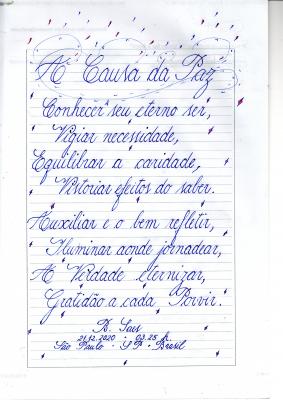 A Causa da Paz
Conhecer seu eterno ser,
Vigiar necessidade,
Equilibrar a caridade,
Vistoriar efeitos do saber.
Auxiliar e o bem refletir,
Iluminar aonde jornadear,
A Verdade eternizar,
Gratidão a cada Porvir.
21.12.2020 - 03.25 h
São Paulo - SP - Brasil